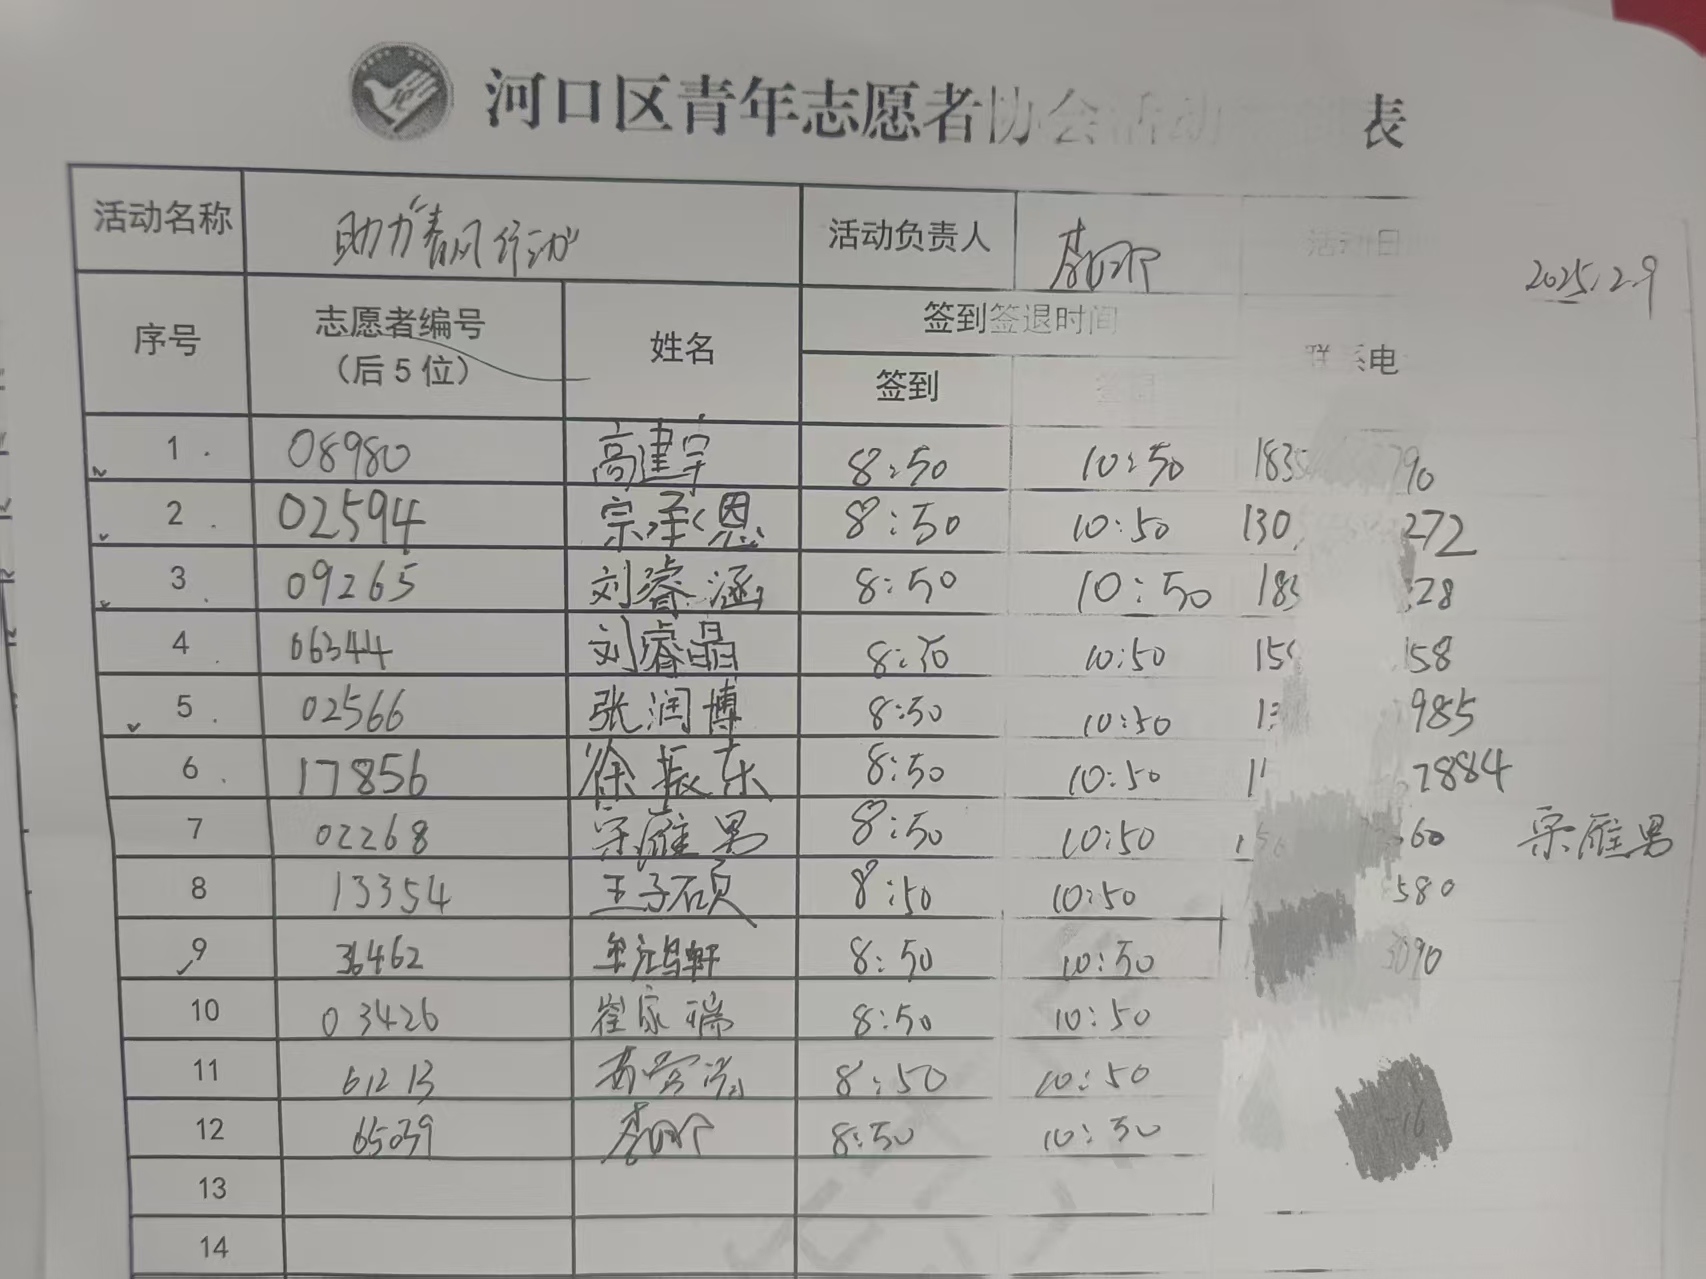 河口区青年志愿者协会活动 表
活动名称 助力“春风行动” 活动负责人 活动日 2025.2.9
序号 志愿者编号 姓名 签到签退时间 联系电
（后5位） 签到
1 08980 高建宇 8:50 10:50 183 790
2 02594 宗承恩 8:50 10:50 130 272
3 09265 刘睿涵 8:50 10:50 183 28
4 06344 刘睿晶 8:50 10:50 159 158
5 02566 张润博 8:50 10:50 13 985
6 17856 徐振东 8:50 10:50 1 7884
7 02268 宗雁男 8:50 10:50 60 宗雁男
8 13354 王子硕 8:50 10:50 580
9 36462 8:50 10:50 3090
10 03426 崔家瑞 8:50 10:50
11 61213 8:50 10:50
12 65039 8:50 10:50 16
13
14